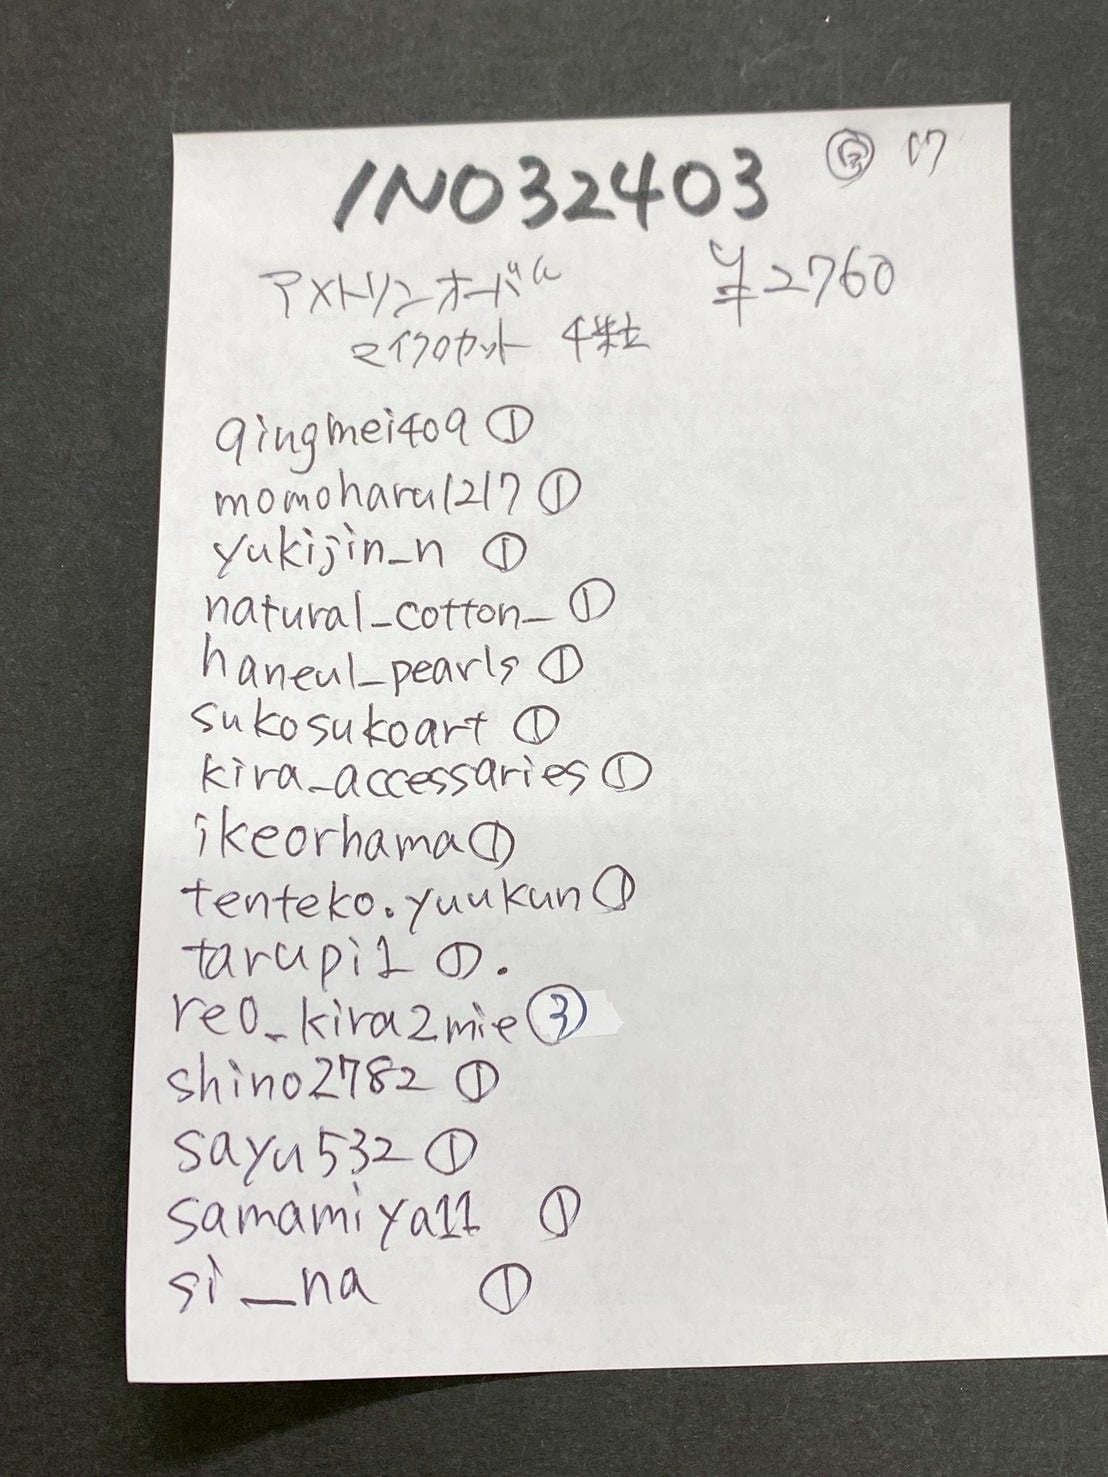 INO32403
07
アメトリンオーバル ¥2760
マイクロカット 4粒
qingmei409 ①
momoharu1217 ①
yukijin_n ①
natural_cotton_ ①
haneul_pearls ①
sukosukoart ①
kira_accessaries ①
ikeorhama ①
tenteko.yuukun ①
tarupi1 ①.
reo_kira2mie ③
shino2782 ①
sayu532 ①
samamiya11 ①
si_na ①